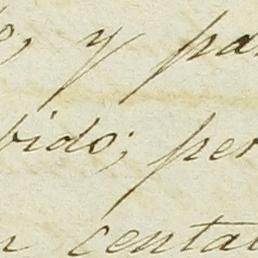 y pa
bido; per
n centa